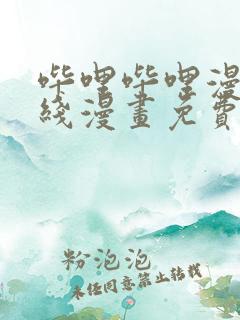 哔哩哔哩漫
线漫畫免費
粉泡泡
未经同意禁止转载